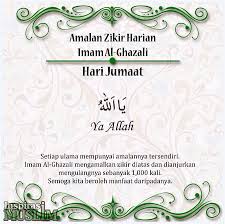 Amalan Zikir Harian
Imam Al-Ghazali
Hari Jumaat
يَا اَللهُ
Ya Allah
Setiap ulama mempunyai amalannya tersendiri.
Imam Al-Ghazali mengamalkan zikir diatas dan dianjurkan
mengulangnya sebanyak 1,000 kali.
Semoga kita beroleh manfaat daripadanya.
Inspirasi
MUSLIM